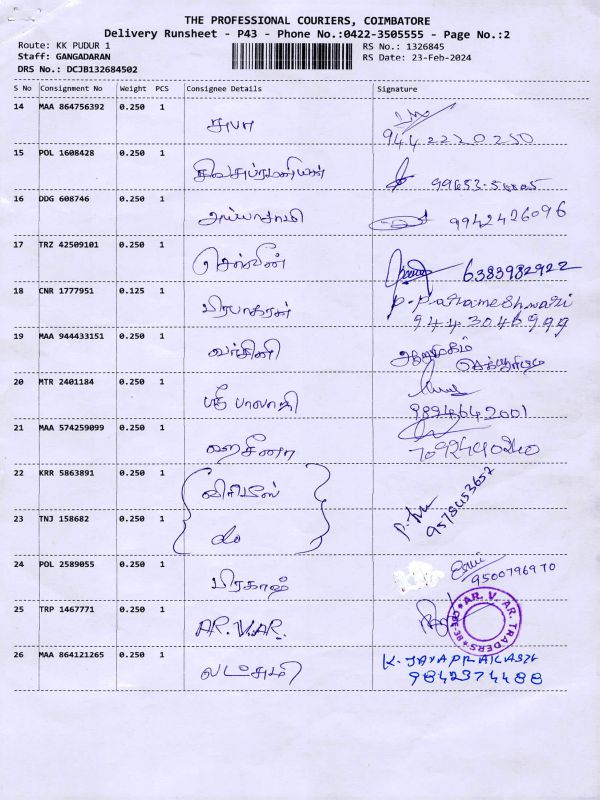 THE PROFESSIONAL COURIERS, COIMBATORE
Delivery Runsheet - P43 - Phone No.:0422-3505555 - Page No.:2
Route: KK PUDUR 1
RS No.: 1326845
Staff: GANGADARAN
RS Date: 23-Feb-2024
DRS No.: DCJB132684502
S No Consignment No Weight PCS Consignee Details Signature
14 MAA 864756392 0.250 1 சுபா
9442220250
15 POL 1608428 0.250 1 சிவசுப்ரமணியன்
16 DDG 608746 0.250 1 அய்யாசாமி 9942426096
17 TRZ 42509101 0.250 1 செல்வின் 6383982922
18 CNR 1777951 0.125 1 பிரபாகரன் P. Parameshwari
9443046999
19 MAA 944433151 0.250 1 வர்தினி ஆறுமுகம்
20 MTR 2401184 0.250 1 ஸ்ரீ பாலாஜி
9894642001
21 MAA 574259099 0.250 1 ஹசீனா 7092490240
22 KRR 5863891 0.250 1
23 TNJ 158682 0.250 1 do 9578453652
24 POL 2589055 0.250 1 பிரகாஷ் 9500796970
25 TRP 1467771 0.250 1 AR.V.AR.
AR. V. AR. TRADERS
CBE-38
26 MAA 864121265 0.250 1 லட்சுமி K. JAYAPRAKASH
9842374488